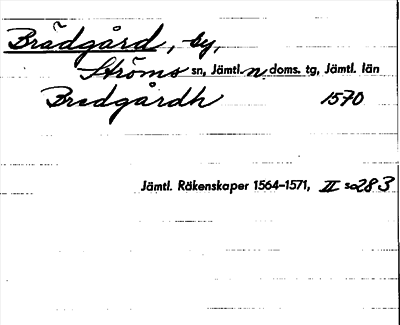 Brådgård, by,
Ströms sn, Jämtl. n doms. tg, Jämtl. län
Bredgårdh 1570
Jämtl. Räkenskaper 1564–1571, II s 283